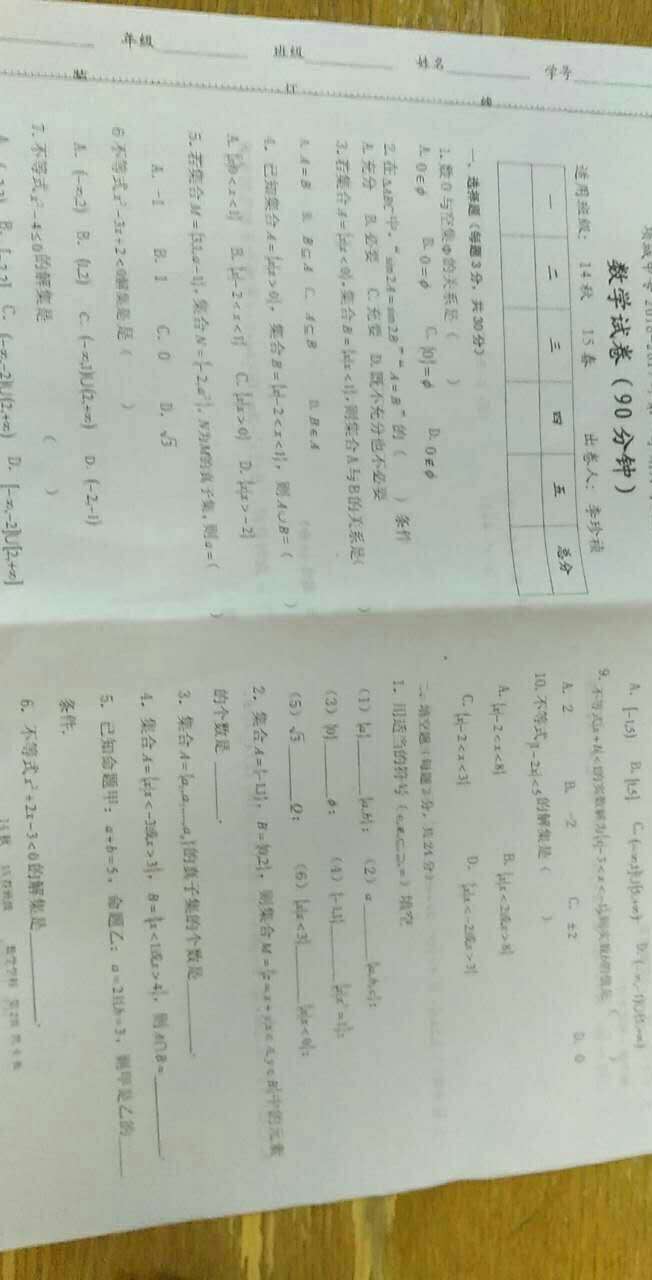 年级 班级 姓名 学号
装 订 线
数学试卷（90分钟）
适用班级： 14秋 15春 出卷人：李珍祯
一 二 三 四 五 总分
一、选择题（每题3分，共30分）
1.数0与空集φ的关系是（ ）
A. 0∈φ B. 0=φ C. {0}=φ D. 0∉φ
2.在△ABC中，“sin2A=sin2B”“A=B”的（ ）条件
A.充分 B.必要 C.充要 D.既不充分也不必要
3.若集合A={x|x<0},集合B={x|x<1},则集合A与B的关系是（ ）
A. A=B B. B⊆A C. A⊆B D. B∈A
4. 已知集合A={x|x>0}，集合B={x|-2<x<1}，则A∪B=（ ）
A. {x|0<x<1} B. {x|-2<x<1} C. {x|x>0} D. {x|x>-2}
5. 若集合M={3,1,a-1}，集合N={-2,a²}，N为M的真子集，则a=（ ）
A. -1 B. 1 C. 0 D. √3
6不等式x²-3x+2<0解集是是（ ）
A. (-∞,2) B. (1,2) C. (-∞,1)∪(2,+∞) D. (-2,-1)
7. 不等式x²-4≤0的解集是（ ）
A. B. [-2,2] C. (-∞,-2)∪(2,+∞) D. [-∞,-2]∪[2,+∞]
A. B. C. D.
9. 不等式|x+b|<1的实数解为{x|-3<x<-1},则实数b的值是（ ）
A. 2 B. -2 C. ±2 D. 0
10. 不等式|1-2x|<5的解集是（ ）
A. {x|-2<x<8} B. {x|x<2或x>8}
C. {x|-2<x<3} D. {x|x<-2或x>3}
二、填空题（每题2分，共24分）
1. 用适当的符号（∈,∉,⊆,⊇,=）填空
（1）{a}____{a,b}；（2）a____{a,b,c}；
（3）{0}____φ；（4）{-1,1}____{x|x²=1}；
（5）√3____Q；（6）{x|x<3}____{x|x<0}；
2. 集合A={-1,1}，B={0,2}，则集合M={z=x+y|x∈A,y∈B}中的元素
的个数是____.
3. 集合A={a₁a₂,...,aₙ}的真子集的个数是____.
4. 集合A={x|x<-3或x>3}，B={x<1或x>4}，则A∩B=____.
5. 已知命题甲：a+b=5，命题乙：a=2且b=3，则甲是乙的____
条件.
6. 不等式x²+2x-3<0的解集是____.
数学学科 第2页 共4页